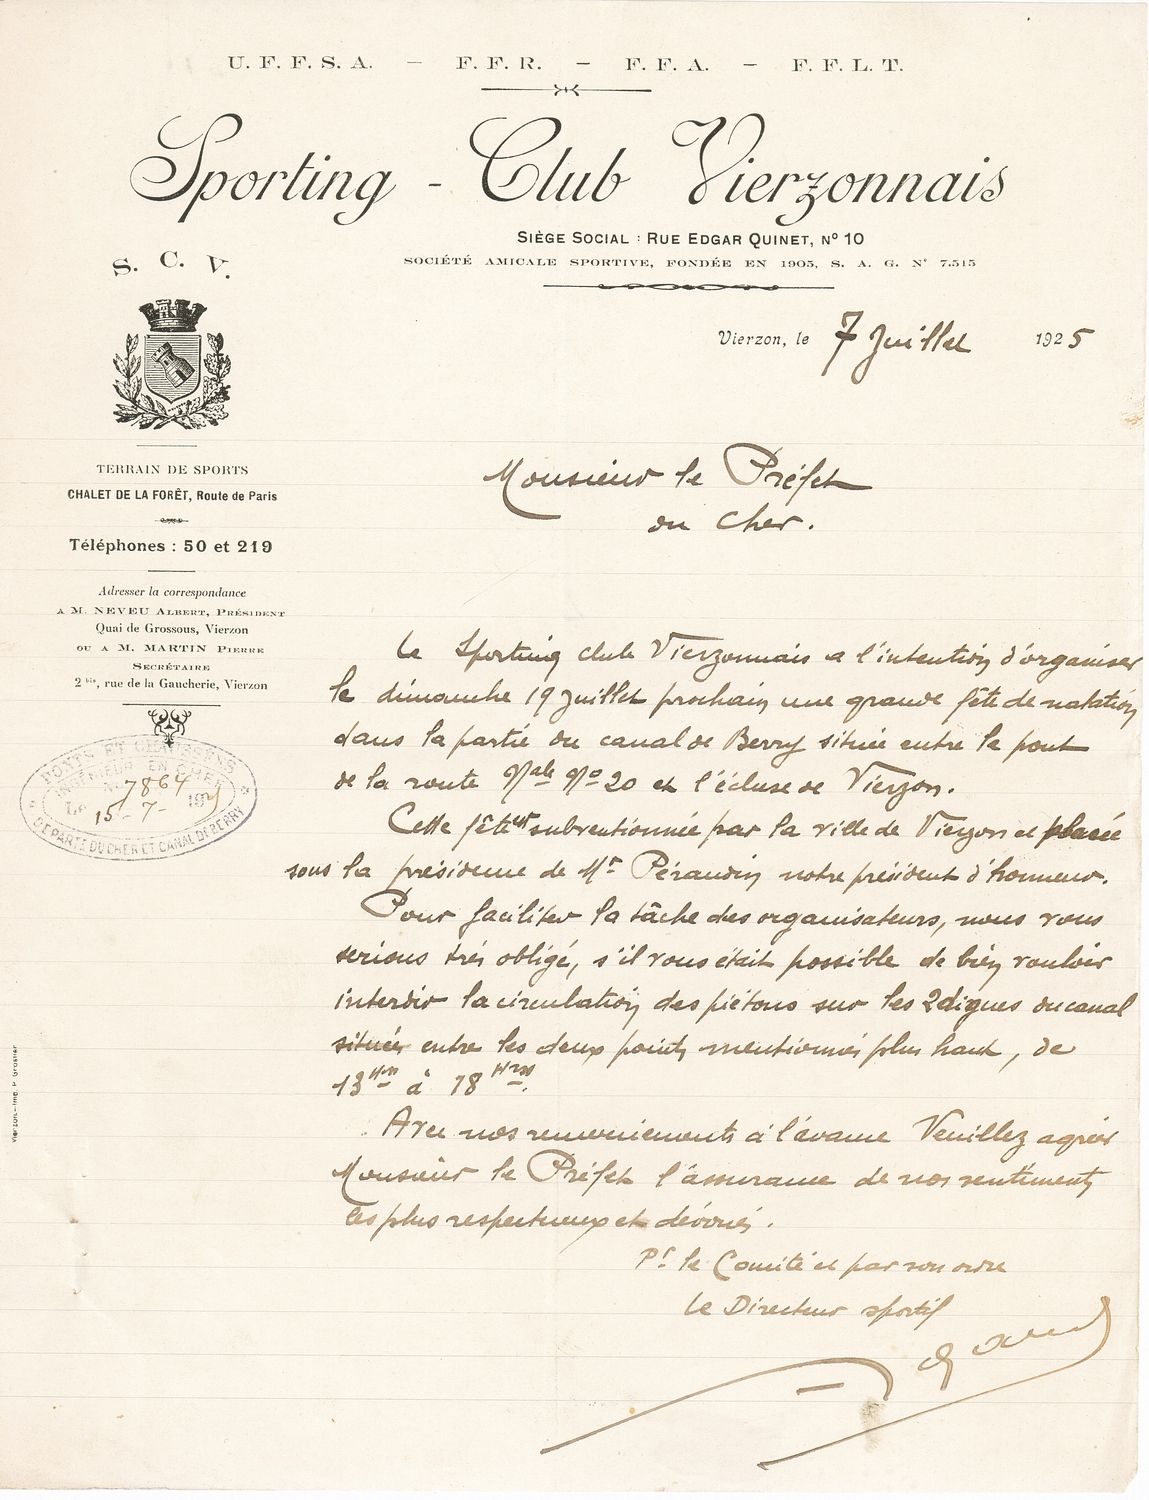 U. F. F. S. A. — F. F. R. — F. F. A. — F. F. L. T.
Sporting - Club Vierzonnais
SIÈGE SOCIAL : RUE EDGAR QUINET, N° 10
SOCIÉTÉ AMICALE SPORTIVE, FONDÉE EN 1905, S. A. G. N° 7.515
S. C. V.
Vierzon, le 7 Juillet 1925
TERRAIN DE SPORTS
CHALET DE LA FORÊT, Route de Paris
Téléphones : 50 et 219
Adresser la correspondance
A M. NEVEU ALBERT, PRÉSIDENT
Quai de Grossous, Vierzon
OU A M. MARTIN PIERRE
SECRÉTAIRE
2 bis, rue de la Gaucherie, Vierzon
PONTS ET CHAUSSÉES
INGÉNIEUR EN CHEF
N° 7864
Le 15-7- 192
DÉPART. DU CHER ET CANAL DE BERRY
Vierzon.—Imp. P. Grosnier
Monsieur le Préfet
du Cher.
Le Sporting club Vierzonnais a l'intention d'organiser
le dimanche 19 Juillet prochain une grande fête de natation
dans la partie du canal de Berry située entre le pont
de la route Nale No 20 et l'écluse de Vierzon.
Cette fête est subventionnée par la ville de Vierzon et placée
sous la présidence de Mr Péraudin notre président d'honneur.
Pour faciliter la tâche des organisateurs, nous vous
serions très obligé, s'il vous était possible de bien vouloir
interdir la circulation des piétons sur les 2 digues du canal
situées entre les deux points mentionnés plus haut, de
13 Hres à 18 Hres.
Avec nos remerciements à l'avance Veuillez agréer
Monsieur le Préfet l'assurance de nos sentiments
les plus respectueux et dévoués.
Pr le Comité et par son ordre
Le Directeur sportif